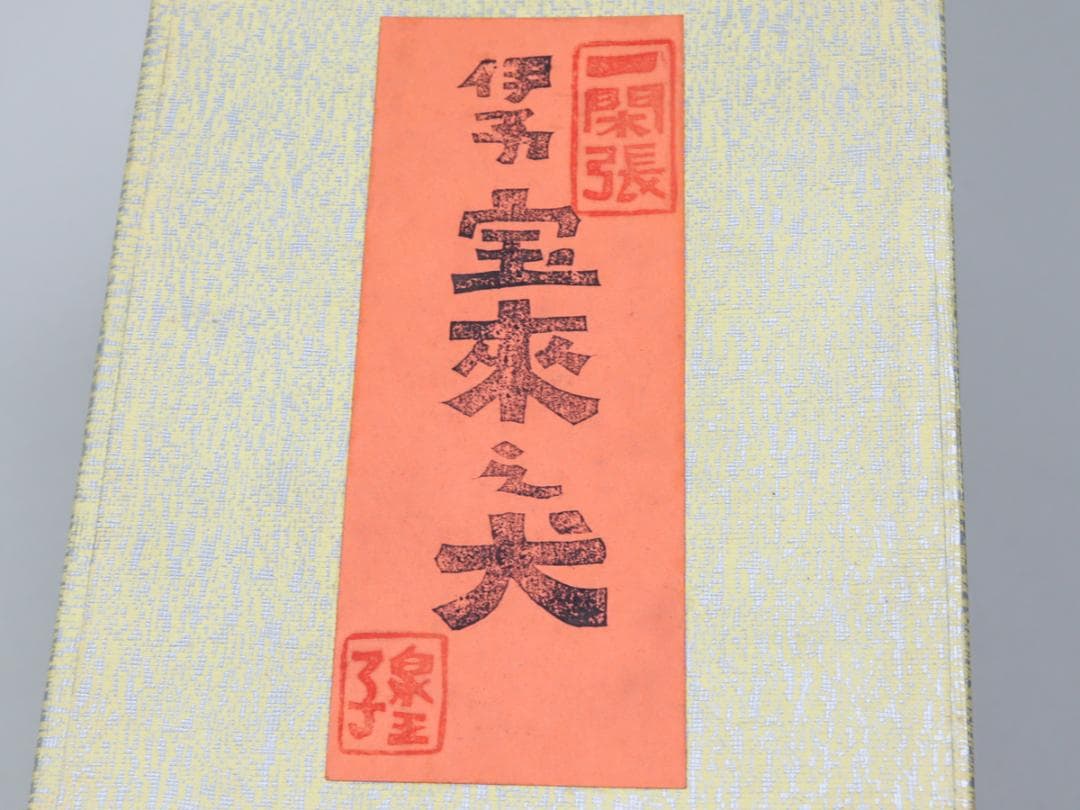 一閑張
伊予
宝來之犬